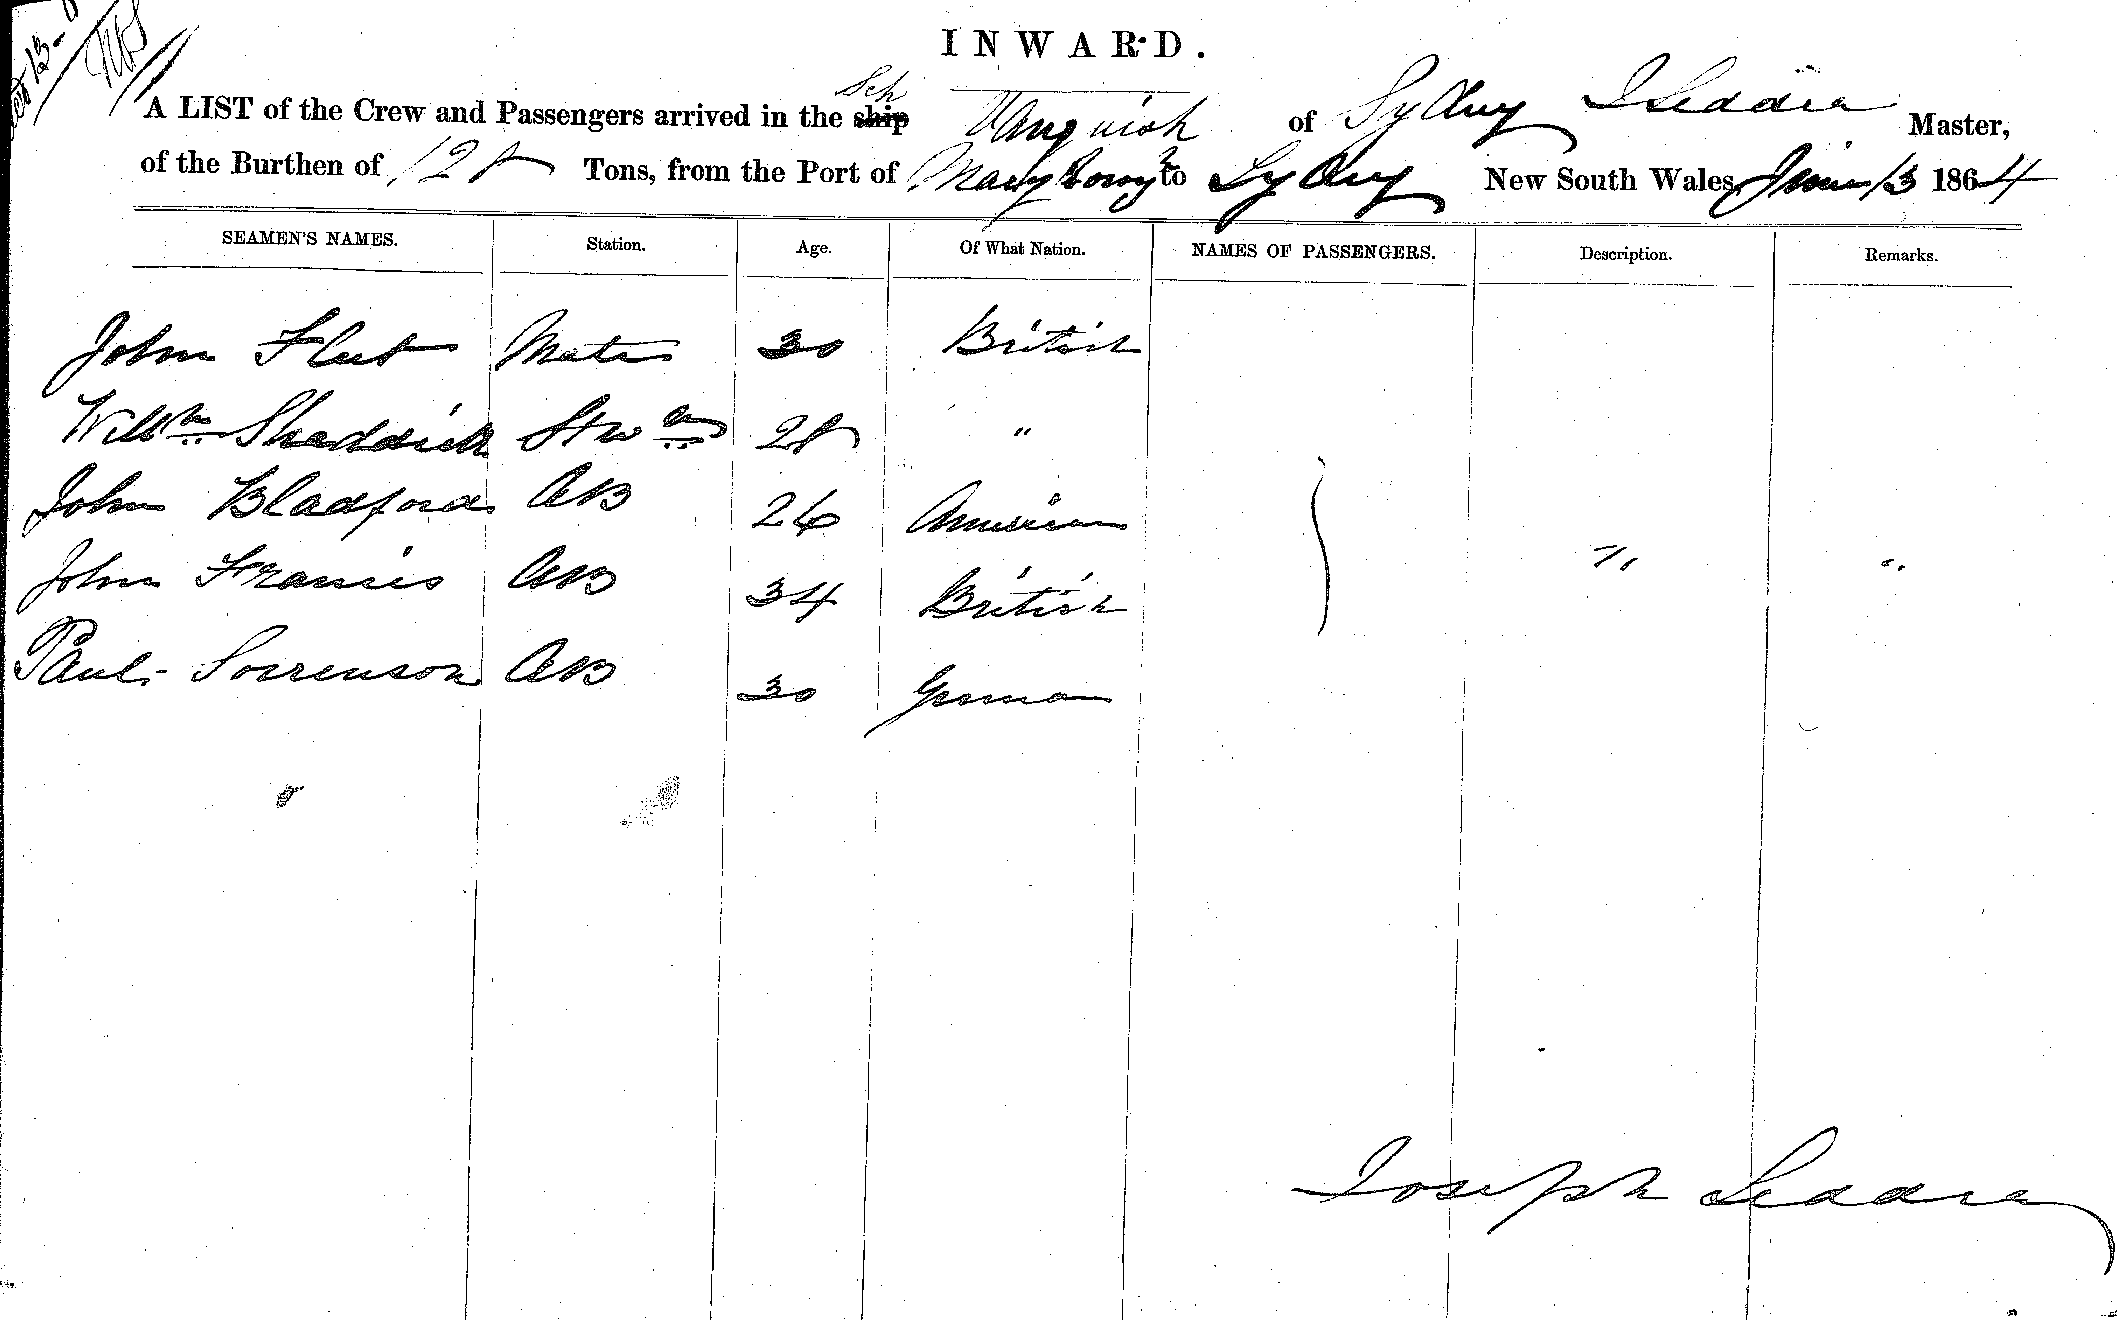 INWARD.
A LIST of the Crew and Passengers arrived in the ship Sch Vanquish of Sydney J Seddin Master,
of the Burthen of 128 Tons, from the Port of to Sydney New South Wales, June 13 1864
SEAMEN'S NAMES. Station. Age. Of What Nation. NAMES OF PASSENGERS. Description. Remarks.
John Mate 30 British
Willm Sheddick Stwd 28 "
John Bladford AB 26 American
John Francis AB 34 British
Paul Sorrenson AB 30 German
Joseph